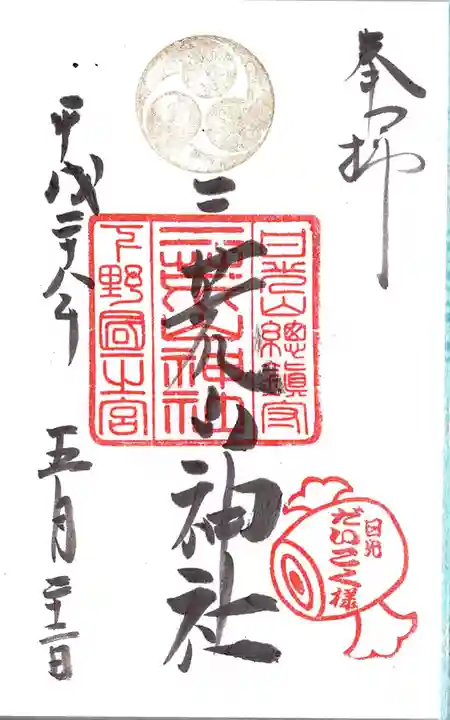 奉拝
日光山總鎮守
二荒山神社
二荒山神社
下野國一之宮
平成二十八年
五月
日光
だいこく様